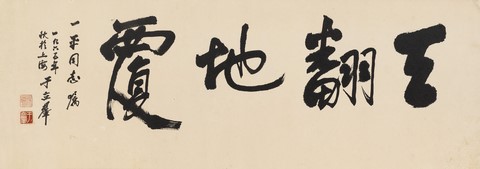 天翻地覆
一平同志嘱
一九六五年
秋于上海 于立群